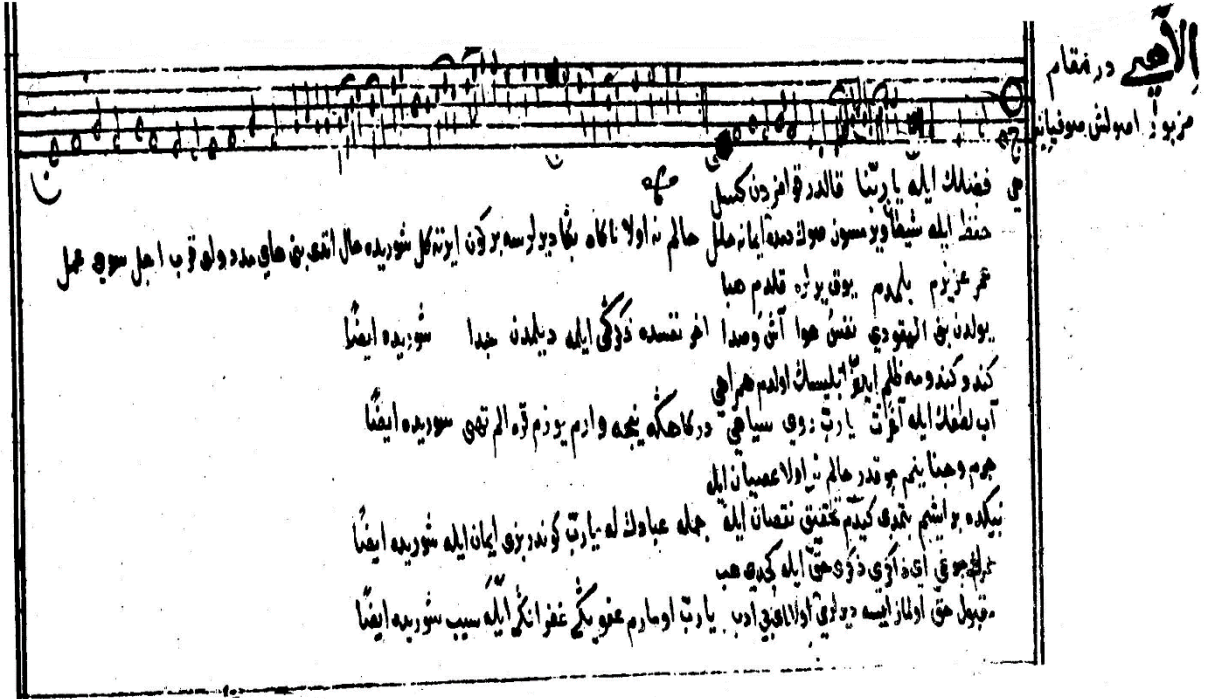 إلاهي در مقام
مزبور اصولش صوفيانه
فضلك ايله يا ربّنا قالدر قوامزدن كسل
حفظ ايله شيطان ويرمسون صوك دمده ايمانه خلل حالم نه اولا ناكاه بكا ديرلرسه بر كون ايرته كل شوريده حال اتدى بنى هاى مدد ولى قرب اجل سوى عمل
عمر عزيزم بلمدم يوق يره قلدم هبا
يولدن بنى نفس هوا آخر نفسده ذكركى ايله ديلمدن جدا شوريده ايضًا
كند و كندومه ظلم ايدوب ابليسك اولدم همراهى
آب لطفك ايله آغرت يا ربّ روى سياهى دركاهكه نيجه وارم يوزم قره الم تهى شوريده ايضًا
جرم و جنايتم چوقدر حالم نه اولا عصيان ايله
نيكده بر ايشم بتمدى كيدم تحقيق نقصان ايله جمله عبادك له يا ربّ كوندر بزى ايمان ايله شوريده ايضًا
چوغى اى ذاكرى ذكرى حقّ ايله كچدى هب
مقبول حق اولماز ايسه ديرلر اولا ادب يا ربّ اومارم عفويكى غفرانكى ايله سبب شوريده ايضًا